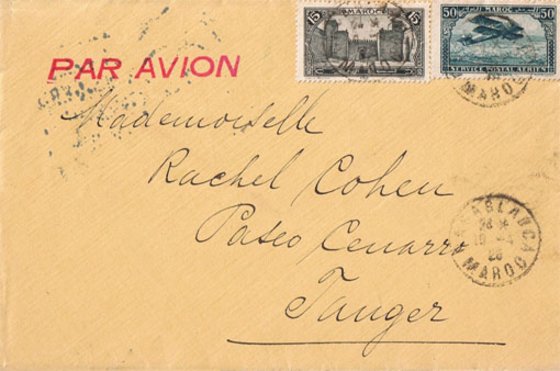 15 MAROC 15
50 MAROC 50
SERVICE POSTAL AÉRIEN
MAROC
PAR AVION
Mademoiselle
Rachel Cohen
Paseo Cenarro
Tanger
CASABLANCA
MAROC